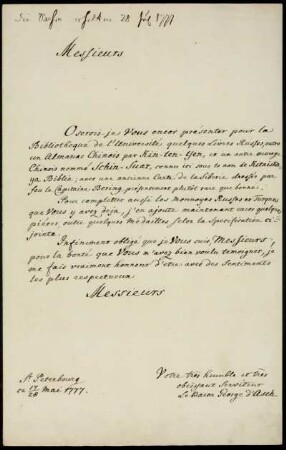 28 Jul 1777
Messieurs
Oserois-je Vous encor présenter pour la
Bibliotheque de l'Université, quelques Livres Russes, outre
un Almanac Chinois par Kin-ten-tsen, et un autre ouvrage
Chinois nommé Schin-Suat, connu ici sous le nom de Kitaiska-
ya Biblia; avec une ancienne Carte de la Sibirie, dressée par
feu le Capitaine Bering, présentement plutôt rare que bonne.
Pour completter aussi les monnoyes Russes en Turques
que Vous y avez déja, j'en ajoute maintenant autres quelques
pièces, outre quelques Medailles selon la Specification ci-
jointe.
Infiniment obligé que je Vous suis, Messieurs,
pour la bonté que Vous m'avez bien voulu temoigner, je
me fais vraiment honneur d'etre avec des Sentimens
les plus respectueux
Messieurs
St. Petersbourg
ce 17/28 Mai 1777.
Votre très humble et très
obeissant Serviteur
Le Baron George d'Asch